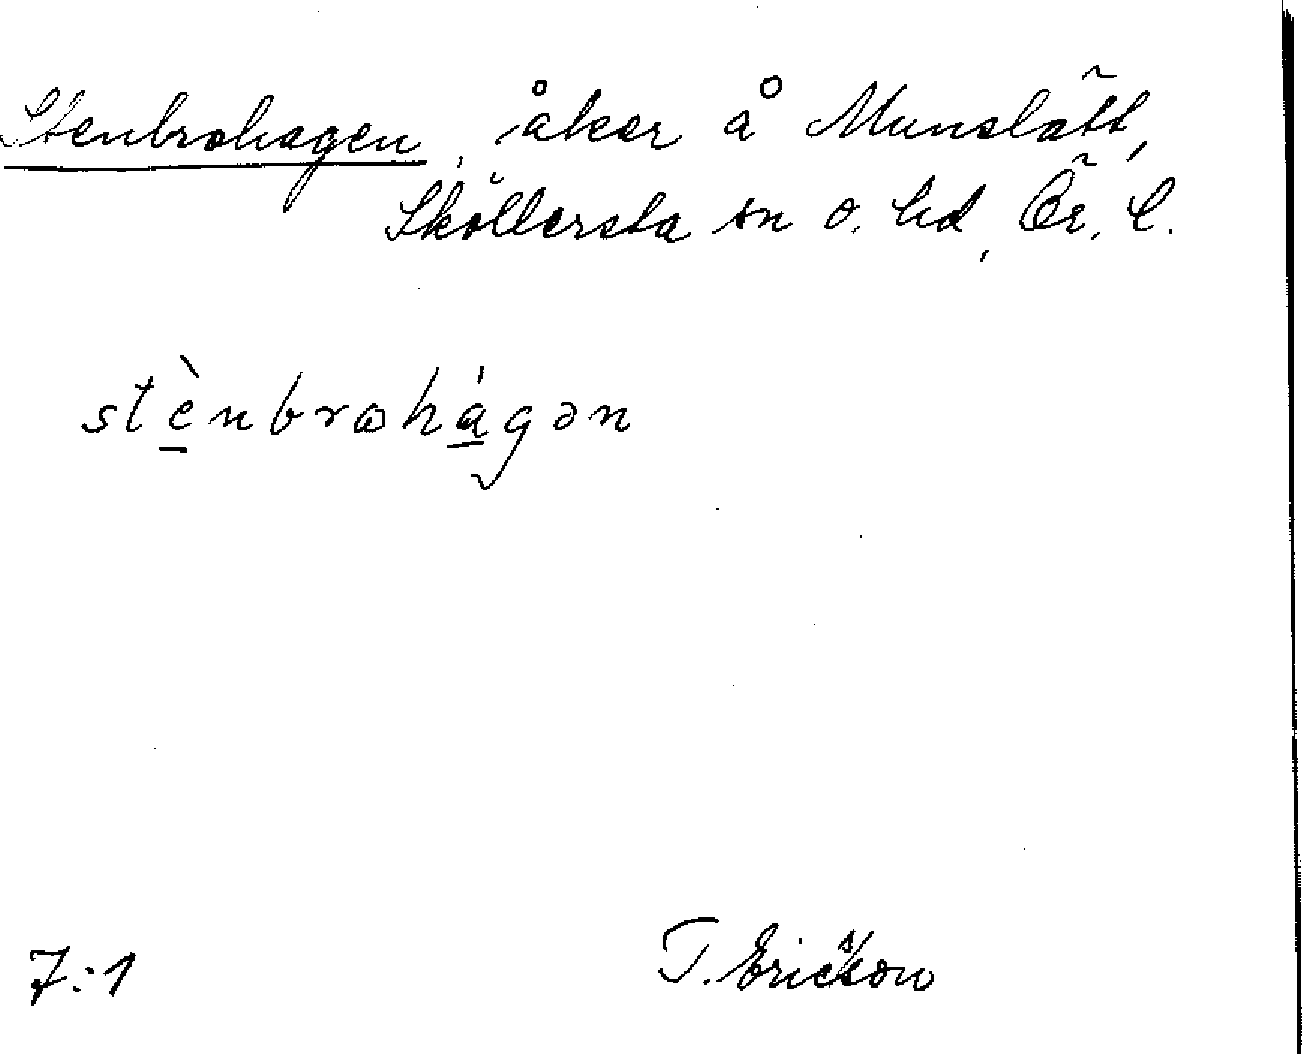 Stenbrohagen, åker å Munslätt,
Sköllersta sn o. hd, Ör. l.
stènbrωhágən
7:1 T. Ericsson